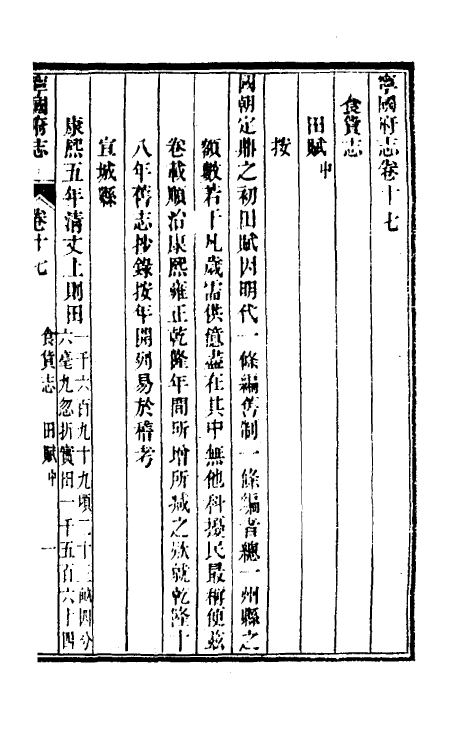 寧國府志卷十七
食貨志
田賦中
按
國朝定鼎之初田賦因明代一條編舊制一條編者總一州縣之
額數若干凡歲需供億盡在其中無他科擾民最稱便茲
卷載順治康熙雍正乾隆年間所增所減之欵就乾隆十
八年舊志抄錄按年開列易於稽考
宣城縣
康熙五年清丈上則田一千六百九十九頃二十三畝四分
六毫九忽折實田一千五百六十四
寧國府志
卷十七
食貨志
田賦中
一